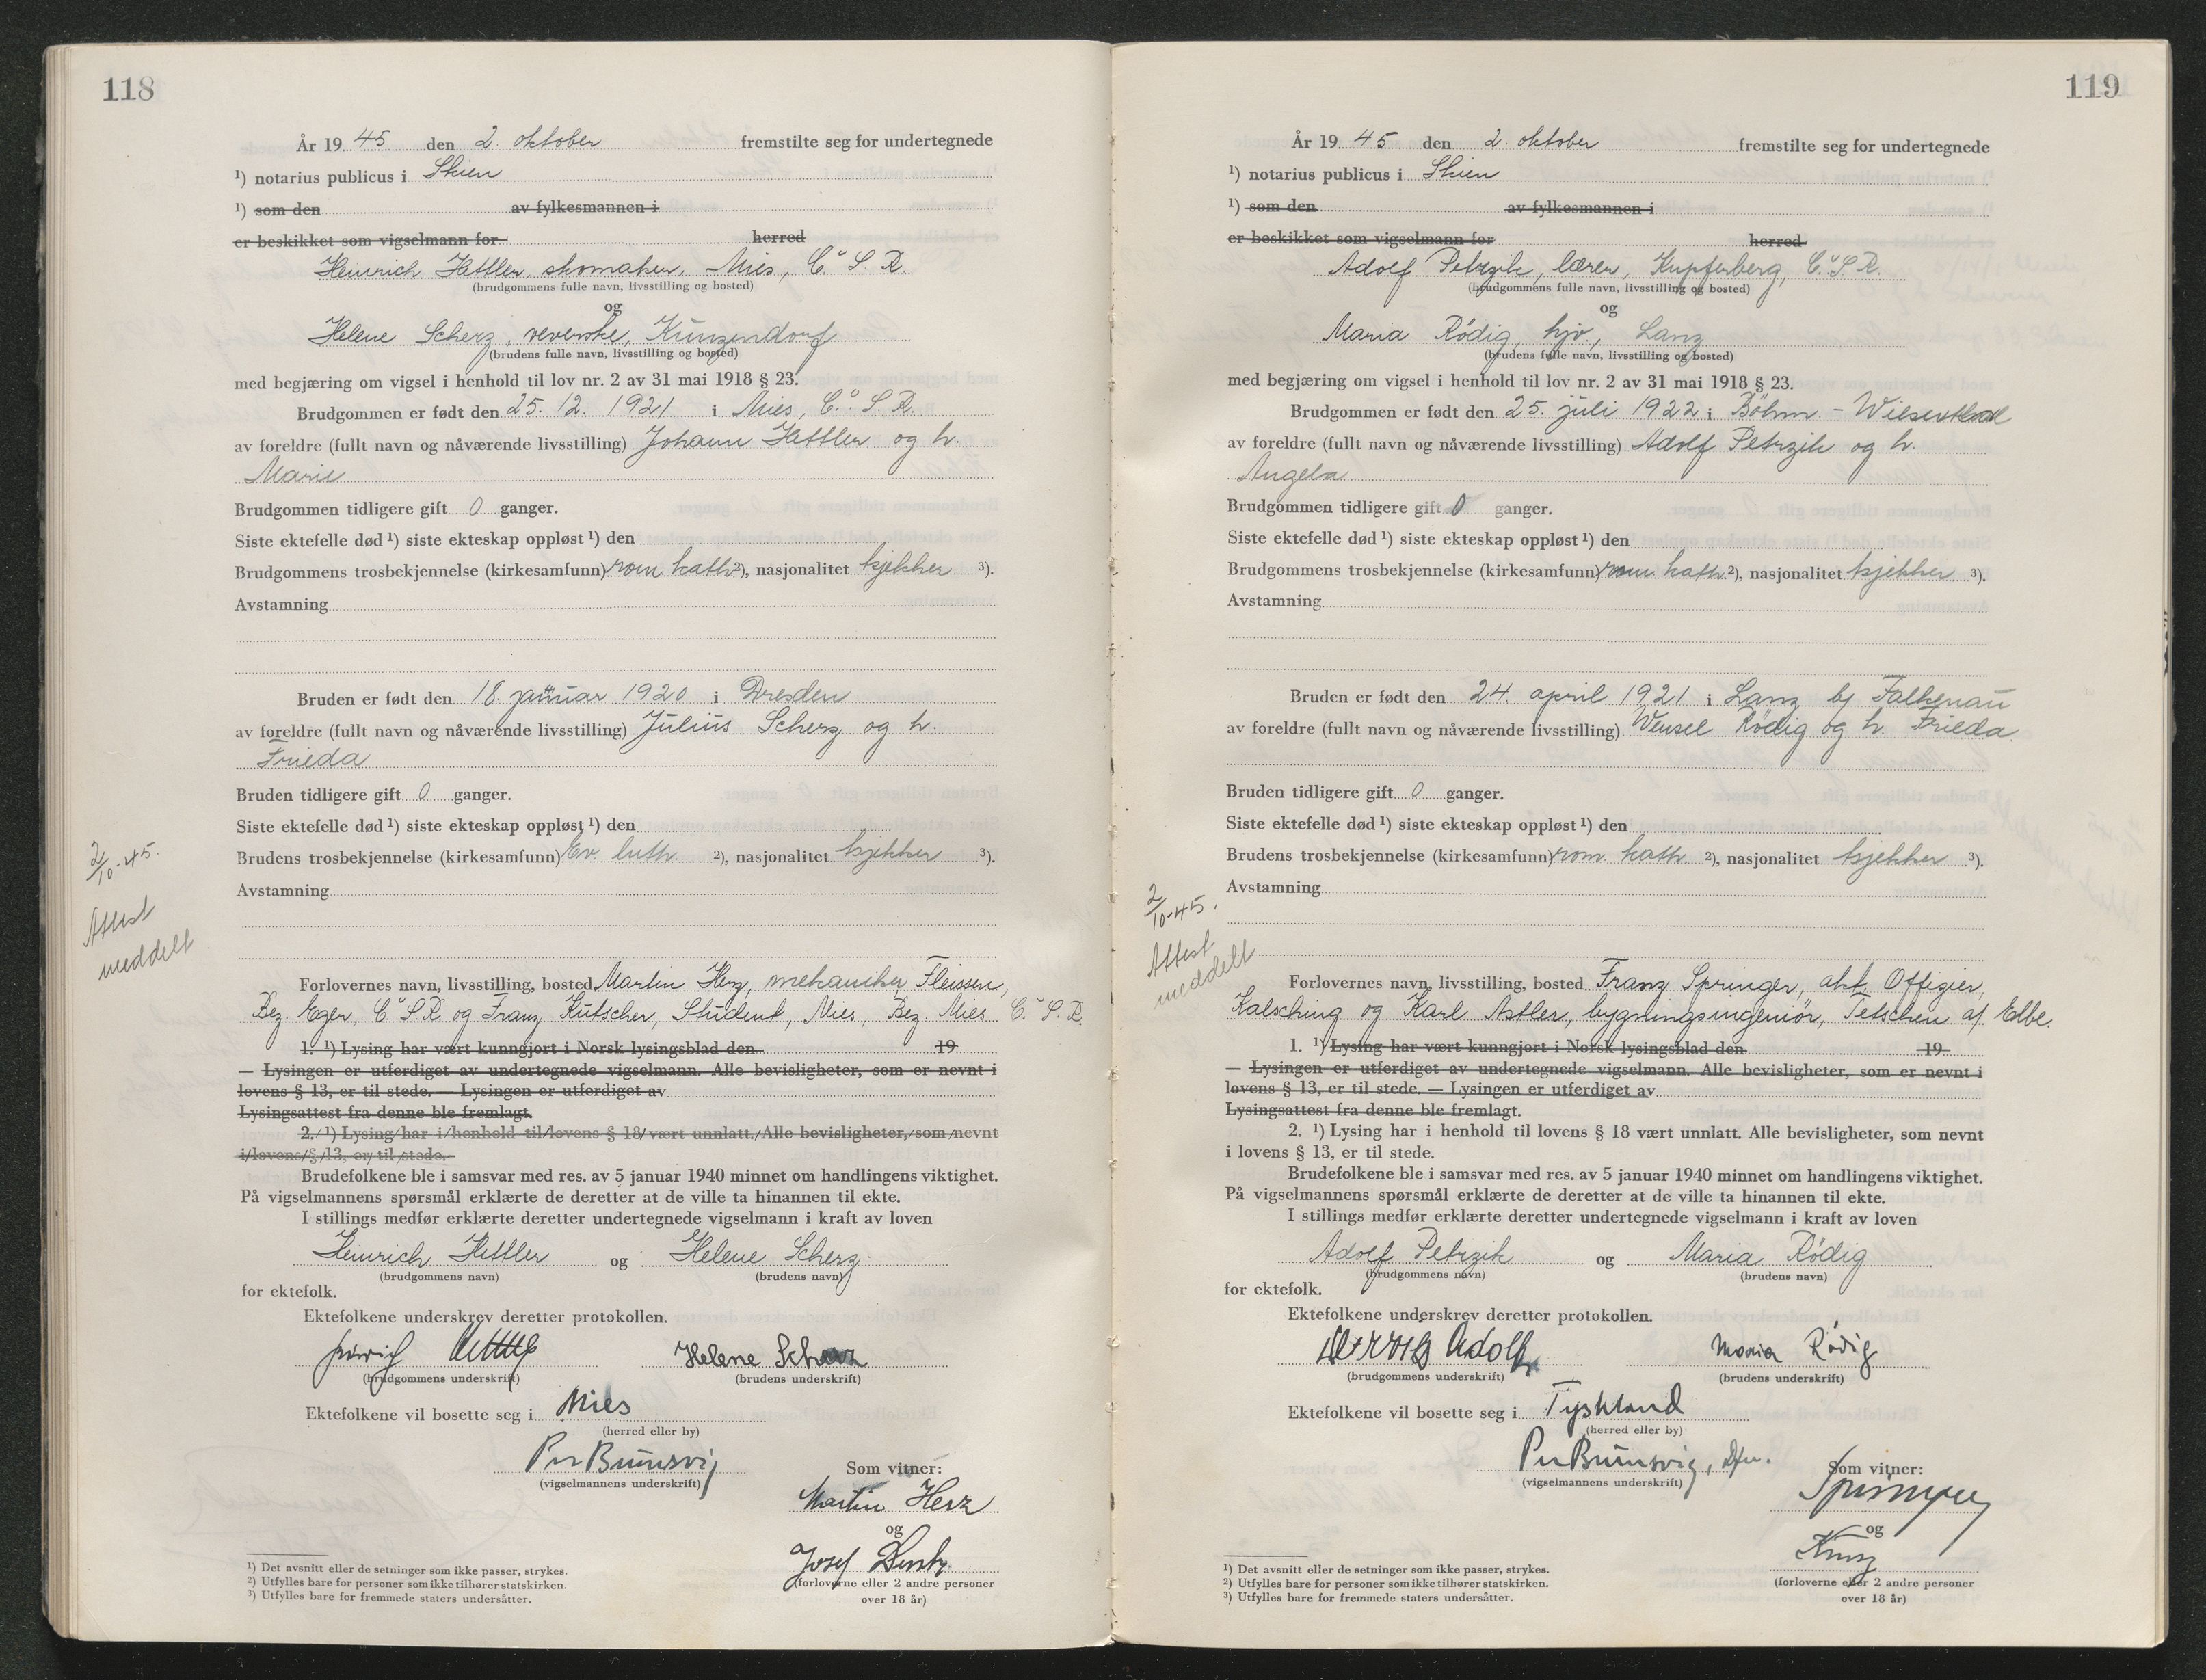 118
År 1945 den 2. oktober fremstilte seg for undertegnede
¹) notarius publicus i Skien
¹) som den av fylkesmannen i
er beskikket som vigselmann for herred
Heinrich Hettler, skomaker, Mies, Č. S. R.
(brudgommens fulle navn, livsstilling og bosted)
og
Helene Scherz, veverske, Kunzendorf
(brudens fulle navn, livsstilling og bosted)
med begjæring om vigsel i henhold til lov nr. 2 av 31 mai 1918 § 23.
Brudgommen er født den 25. 12. 1921 i Mies, Č. S. R.
av foreldre (fullt navn og nåværende livsstilling) Johann Hettler og h.
Marie
Brudgommen tidligere gift 0 ganger.
Siste ektefelle død ¹) siste ekteskap oppløst ¹) den
Brudgommens trosbekjennelse (kirkesamfunn) rom kath ²), nasjonalitet tsjekker ³).
Avstamning
Bruden er født den 18. januar 1920 i Dresden
av foreldre (fullt navn og nåværende livsstilling) Julius Scherz og h.
Frieda
Bruden tidligere gift 0 ganger.
Siste ektefelle død ¹) siste ekteskap oppløst ¹) den
Brudens trosbekjennelse (kirkesamfunn) Ev. luth ²), nasjonalitet tsjekker ³).
Avstamning
2/10-45.
Attest
meddelt
Forlovernes navn, livsstilling, bosted Martin Herz, mekaniker, Fleissen,
Bez. Eger, Č. S. R. og Franz Kutscher, Student, Mies, Bez. Mies Č. S. R.
1. ¹) Lysing har vært kunngjort i Norsk lysingsblad den 19
— Lysingen er utferdiget av undertegnede vigselmann. Alle bevisligheter, som er nevnt i
lovens § 13, er til stede. — Lysingen er utferdiget av
Lysingsattest fra denne ble fremlagt.
2. ¹) Lysing har i henhold til lovens § 18 vært unnlatt. Alle bevisligheter, som nevnt
i lovens § 13, er til stede.
Brudefolkene ble i samsvar med res. av 5 januar 1940 minnet om handlingens viktighet.
På vigselmannens spørsmål erklærte de deretter at de ville ta hinannen til ekte.
I stillings medfør erklærte deretter undertegnede vigselmann i kraft av loven
Heinrich Hettler og Helene Scherz
(brudgommens navn) (brudens navn)
for ektefolk.
Ektefolkene underskrev deretter protokollen.
Helene Scherz
(brudgommens underskrift) (brudens underskrift)
Ektefolkene vil bosette seg i Mies
(herred eller by)
Per Bumsvig
(vigselmannens underskrift)
Som vitner:
Martin Herz
og
Josef
(forloverne eller 2 andre personer
over 18 år)
¹) Det avsnitt eller de setninger som ikke passer, strykes.
²) Utfylles bare for personer som ikke tilhører statskirken.
³) Utfylles bare for fremmede staters undersåtter.
119
År 1945 den 2. oktober fremstilte seg for undertegnede
¹) notarius publicus i Skien
¹) som den av fylkesmannen i
er beskikket som vigselmann for herred
Adolf Petrzik, lærer, Kupferberg, Č. S. R.
(brudgommens fulle navn, livsstilling og bosted)
og
Maria Rödig, hjv., Lanz
(brudens fulle navn, livsstilling og bosted)
med begjæring om vigsel i henhold til lov nr. 2 av 31 mai 1918 § 23.
Brudgommen er født den 25. juli 1922 i Böhm. - Wiesenthal
av foreldre (fullt navn og nåværende livsstilling) Adolf Petrzik og h.
Angela
Brudgommen tidligere gift 0 ganger.
Siste ektefelle død ¹) siste ekteskap oppløst ¹) den
Brudgommens trosbekjennelse (kirkesamfunn) rom kath. ²), nasjonalitet tsjekker ³).
Avstamning
Bruden er født den 24. april 1921 i Lanz bj Falkenau
av foreldre (fullt navn og nåværende livsstilling) Wensel Rödig og h. Frieda
Bruden tidligere gift 0 ganger.
Siste ektefelle død ¹) siste ekteskap oppløst ¹) den
Brudens trosbekjennelse (kirkesamfunn) rom. kath ²), nasjonalitet tsjekker ³).
Avstamning
2/10-45.
Attest
meddelt
Forlovernes navn, livsstilling, bosted Franz Springer, akt. Offizier,
Kalsching og Karl Astler, bygningsingeniör, Tetschen a/ Elbe.
1. ¹) Lysing har vært kunngjort i Norsk lysingsblad den 19
— Lysingen er utferdiget av undertegnede vigselmann. Alle bevisligheter, som er nevnt i
lovens § 13, er til stede. — Lysingen er utferdiget av
Lysingsattest fra denne ble fremlagt.
2. ¹) Lysing har i henhold til lovens § 18 vært unnlatt. Alle bevisligheter, som nevnt
i lovens § 13, er til stede.
Brudefolkene ble i samsvar med res. av 5 januar 1940 minnet om handlingens viktighet.
På vigselmannens spørsmål erklærte de deretter at de ville ta hinannen til ekte.
I stillings medfør erklærte deretter undertegnede vigselmann i kraft av loven
Adolf Petrzik og Maria Rödig
(brudgommens navn) (brudens navn)
for ektefolk.
Ektefolkene underskrev deretter protokollen.
Adolf Maria Rödig
(brudgommens underskrift) (brudens underskrift)
Ektefolkene vil bosette seg i Tyskland
(herred eller by)
Per Bumsvig, Dfm.
(vigselmannens underskrift)
Som vitner:
Springer
og
(forloverne eller 2 andre personer
over 18 år)
¹) Det avsnitt eller de setninger som ikke passer, strykes.
²) Utfylles bare for personer som ikke tilhører statskirken.
³) Utfylles bare for fremmede staters undersåtter.